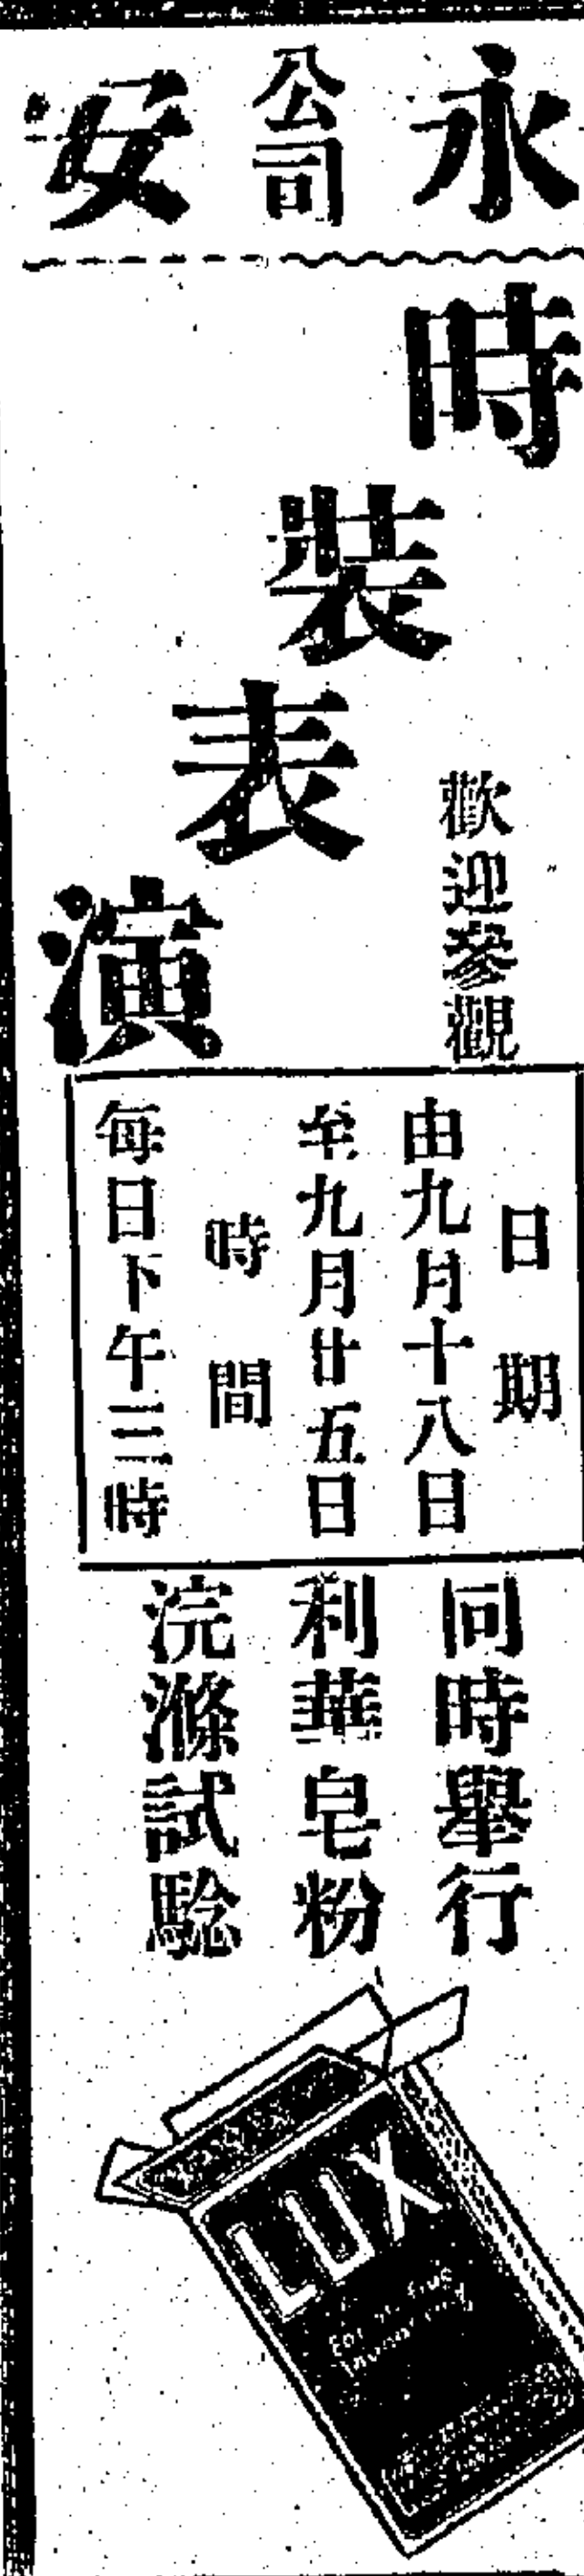 永安公司
時裝表演
歡迎參觀
日期
由九月十八日
至九月廿五日
時間
每日下午三時
同時舉行
利華皂粉
浣滌試驗
LUX